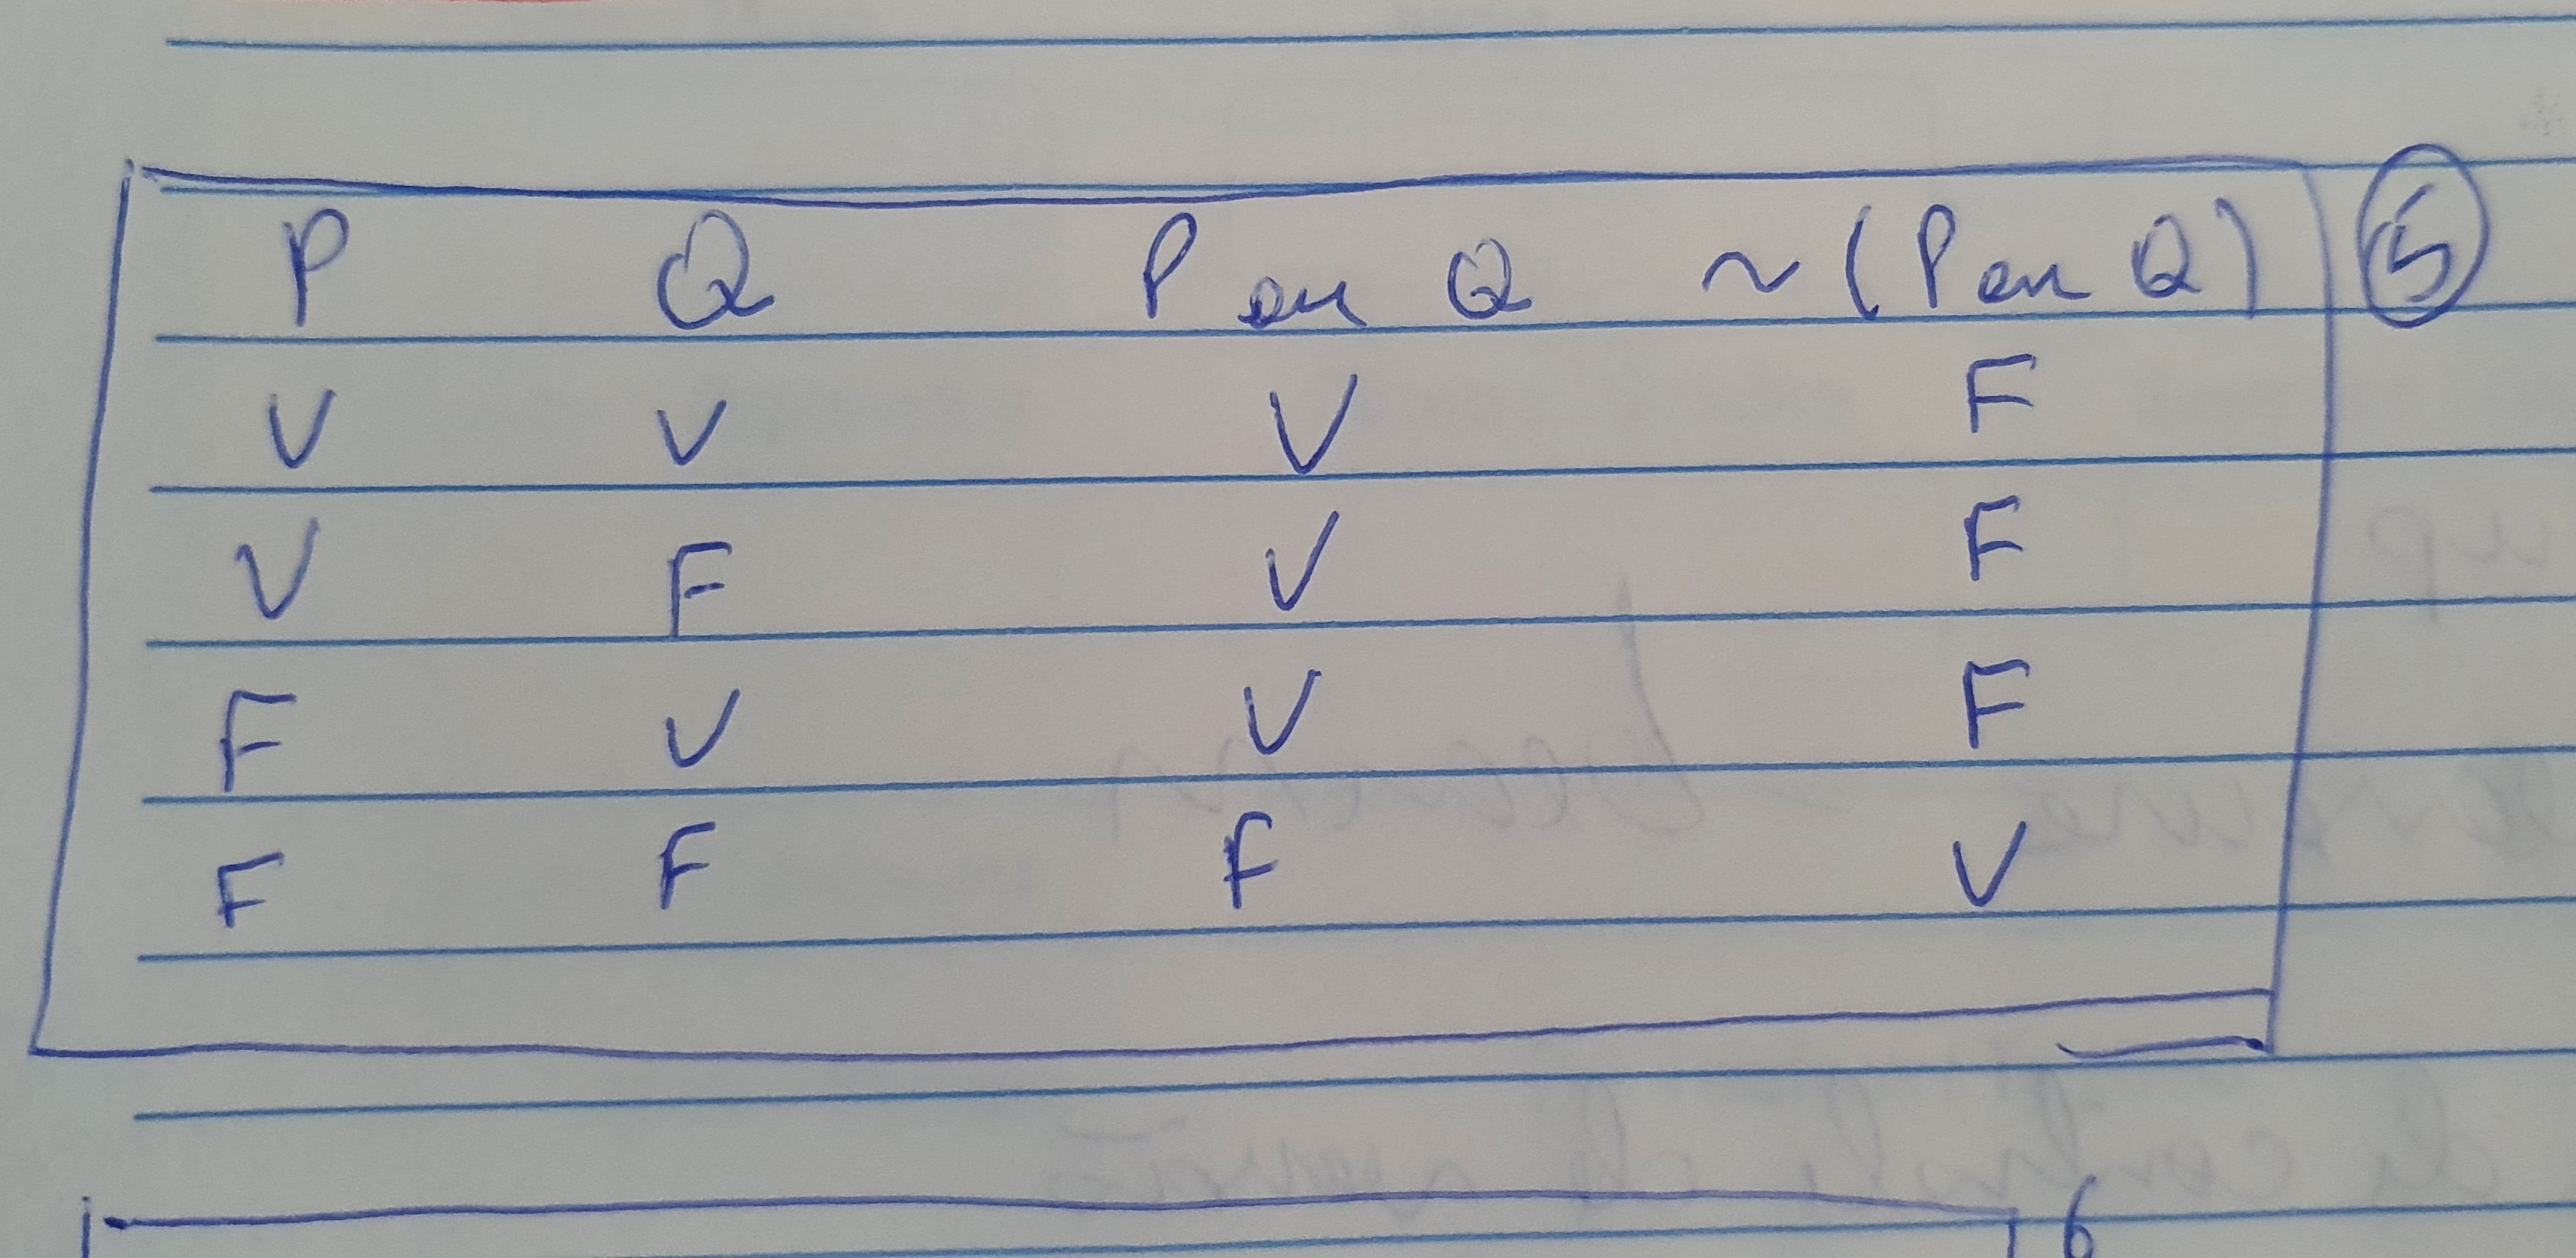 P Q P ou Q ~(P ou Q) 5
V V V F
V F V F
F V V F
F F F V
6